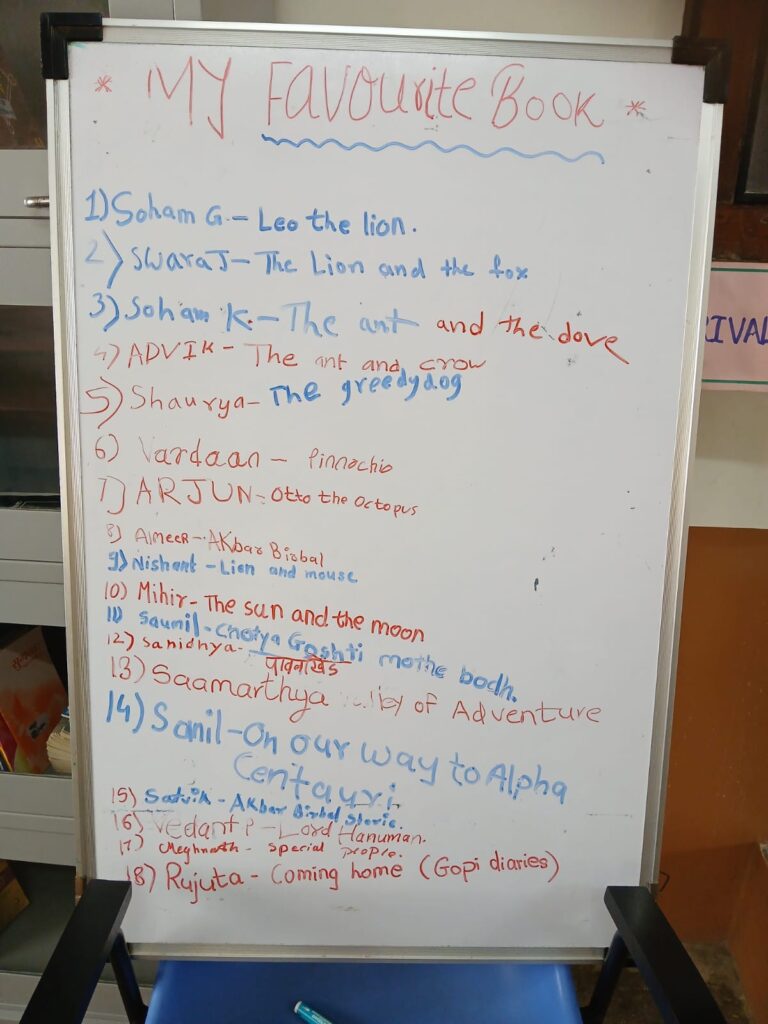 * MY Favourite Book *
1) Soham G. - Leo the lion.
2) Swaraj - The Lion and the fox
3) Soham K. - The ant and the dove
4) ADVIK - The ant and crow
5) Shaurya - The greedy dog
6) Vardaan - Pinnochio
7) ARJUN - Otto the Octopus
8) Ameer - AKbar Birbal
9) Nishant - Lion and mouse
10) Mihir - The sun and the moon
11) Saumil - Chotya Goshti mothe bodh.
12) Sanidhya - पावनखिंड
13) Saamarthya Valley of Adventure
14) Sanil - On our way to Alpha
Centauri
15) Satvik - AKbar Birbal Storie.
16) Vedant P - Lord Hanuman.
17) Meghnath - special people.
18) Rujuta - Coming home (Gopi diaries)
RIVAL